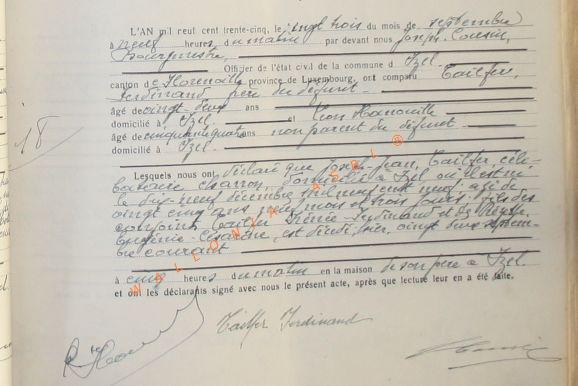 L'AN mil neuf cent trente-cinq, le vingt trois du mois de septembre
à neuf heures du matin par devant nous Joseph Cousin,
Bourgmestre,
Officier de l'état civil de la commune d Izel
canton de Florenville province de Luxembourg, ont comparu Tailfer,
Ferdinand, père du défunt
âgé de ans
domicilié à Izel et Léon Hanouille
âgé de cinquante quatre ans non parent du défunt
domicilié à Izel
18
Lesquels nous ont déclaré que Joseph Jean, Tailfer, céli-
bataire charron, domicilié à Izel où il est né
le dix-neuf décembre mil neuf cent neuf, âgé de
vingt cinq ans neuf mois et trois jours, fils des
conjoints Tailfer Ferdinand et
Eugénie est décédé hier, vingt deux septem-
bre courant
à cinq heures du matin en la maison de son père à Izel.
et ont les déclarants signé avec nous le présent acte, après que lecture leur en a été faite.
WALLONIA ASBL ®
Tailfer Ferdinand